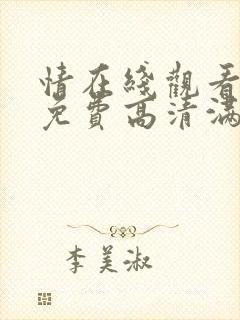 情在綫觀看
免費高清滿
李美淑